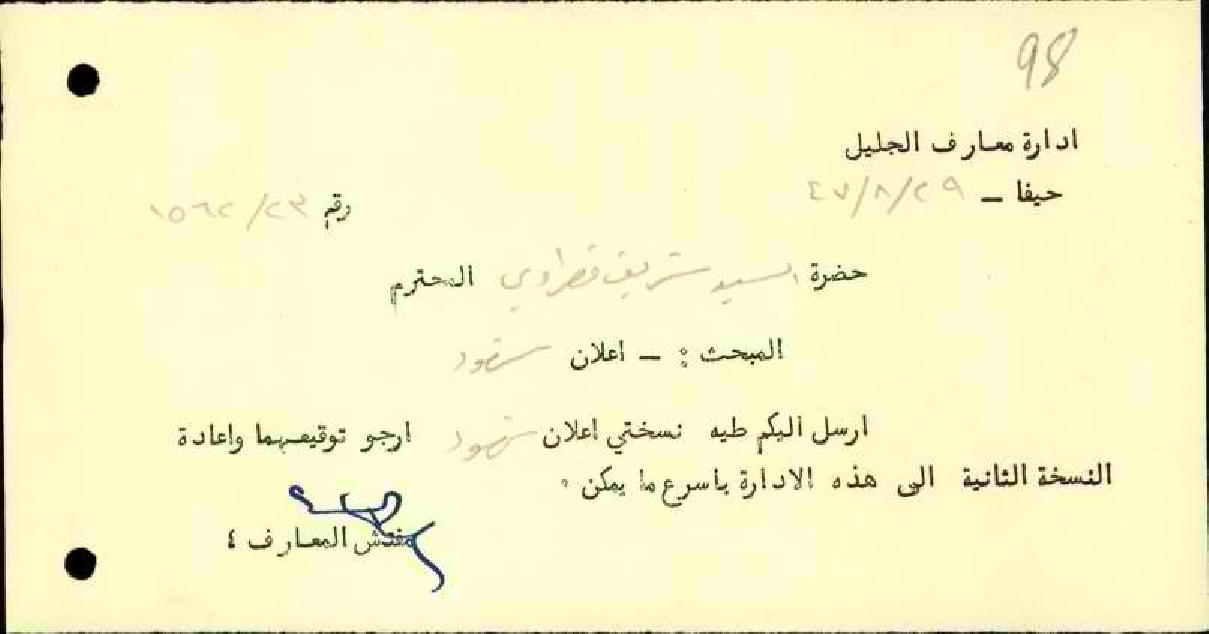 98
ادارة معارف الجليل
حيفا – ٢٩/٨/٤٧
رقم ٢٣/١٥٦٢
حضرة السيد شريف قصراوي المحترم
المبحث : – اعلان نقود
ارسل اليكم طيه نسختي اعلان نقود ارجو توقيعهما واعادة
النسخة الثانية الى هذه الادارة باسرع ما يمكن ٠
مفتش المعارف ٤